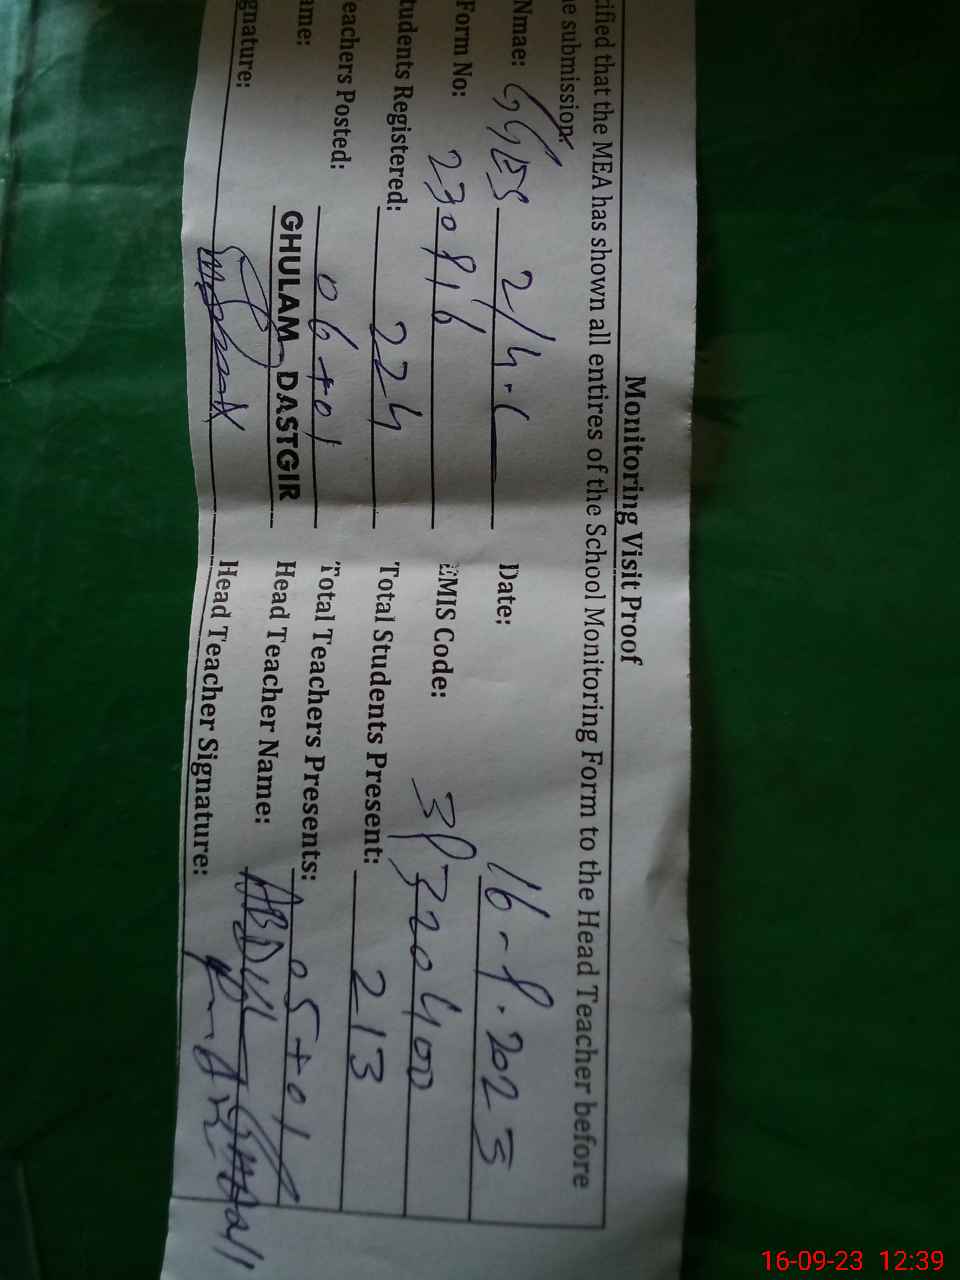 Monitoring Visit Proof
cified that the MEA has shown all entires of the School Monitoring Form to the Head Teacher before
e submission.
Nmae: GGES 2/4.L Date: 16-8.2023
Form No: 230816 EMIS Code: 38320400
tudents Registered: 224 Total Students Present: 213
eachers Posted: 06+01 Total Teachers Presents: 05+01
ame: GHULAM DASTGIR Head Teacher Name: ABDUL
gnature: Head Teacher Signature:
16-09-23 12:39